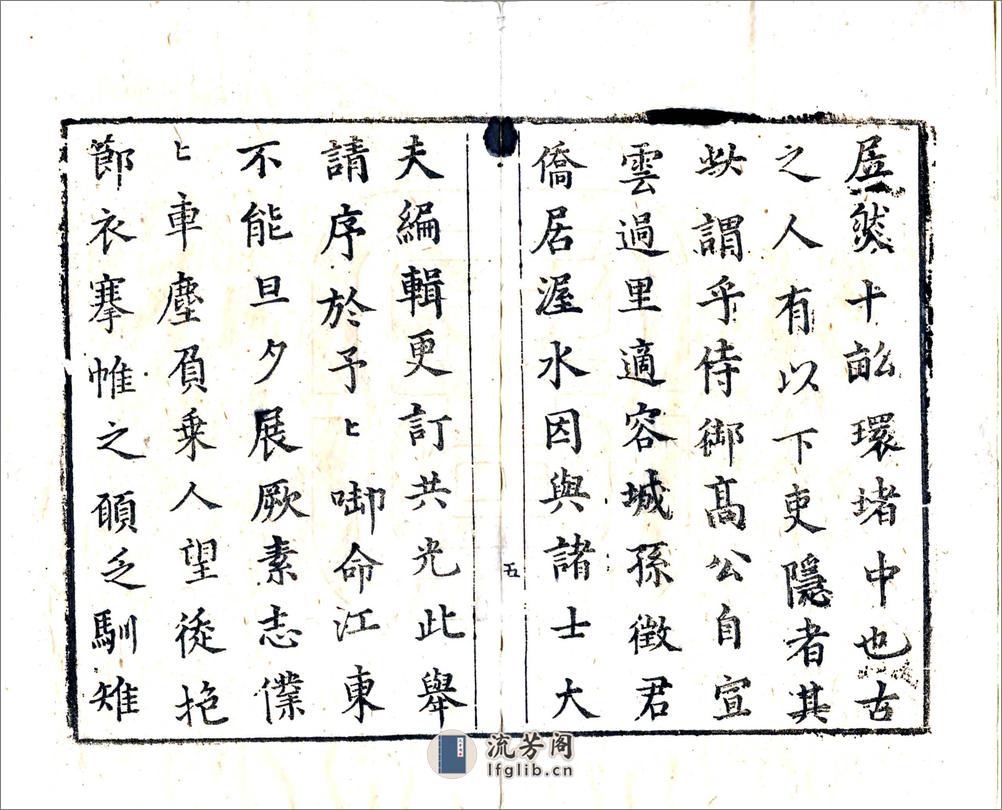 居然十畝環堵中也古
之人有以下吏隱者其
此謂乎侍御髙公自宣
雲過里適容城孫徵君
僑居渥水因與諸士大
五
夫編輯更訂共光此舉
請序於予〻啣命江東
不能旦夕展厥素志僕
〻車塵負乗人望後抱
節衣搴帷之頋乏馴雉
流芳阁
lfglib.cn